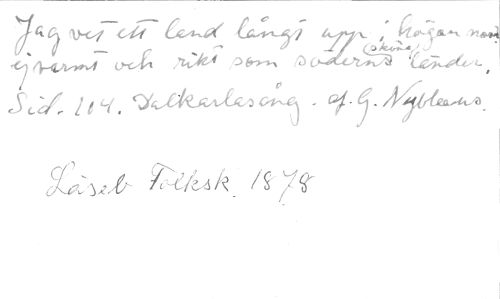 Jag vet ett land långt upp i högan nord
ej varmt och rikt som söderns (sköna) länder.
Sid. 104. Dalkarlasång. af G. Nyblæus.
Läseb Folksk. 1878